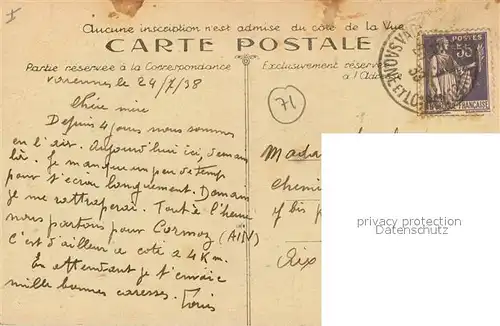 Aucune inscription n'est admise du côté de la Vue
CARTE POSTALE
Partie réservée à la Correspondance
Exclusivement réservée
à l'Adresse
POSTES
55
FRANÇAISE
Varennes le 24/7/38
71
Chère mère
Depuis 4 jours nous sommes
en l'air. Aujourd'hui ici, demain
là. Je manque un peu de temps
pour t'écrire longuement. Demain
je me rattraperai. Tout à l'heure
nous partons pour Cormoz (AIN)
C'est d'ailleurs à coté à 4 Km.
En attendant je t'envoie
mille bonnes caresses.
Mada
chemin
4 bis
Aix
privacy protection
Datenschutz